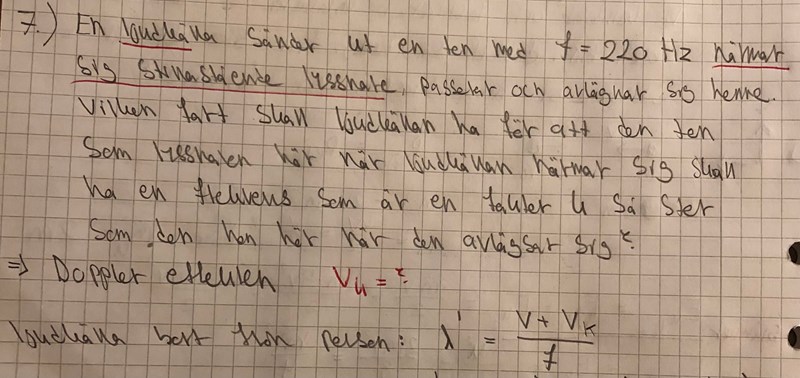 7.) En ljudkälla sänder ut en ton med f = 220 Hz närmar
sig stillastående lyssnare, passerar och avlägnar sig henne.
Vilken fart skall ljudkällan ha för att den ton
som lyssnaren hör när ljudkällan närmar sig skall
ha en frekvens som är en faktor 4 så stor
som den hon hör när den avlägsar sig?
=> Doppler effekten Vk = ?
ljudkälla bort från person: λ' = (V + Vk) / f